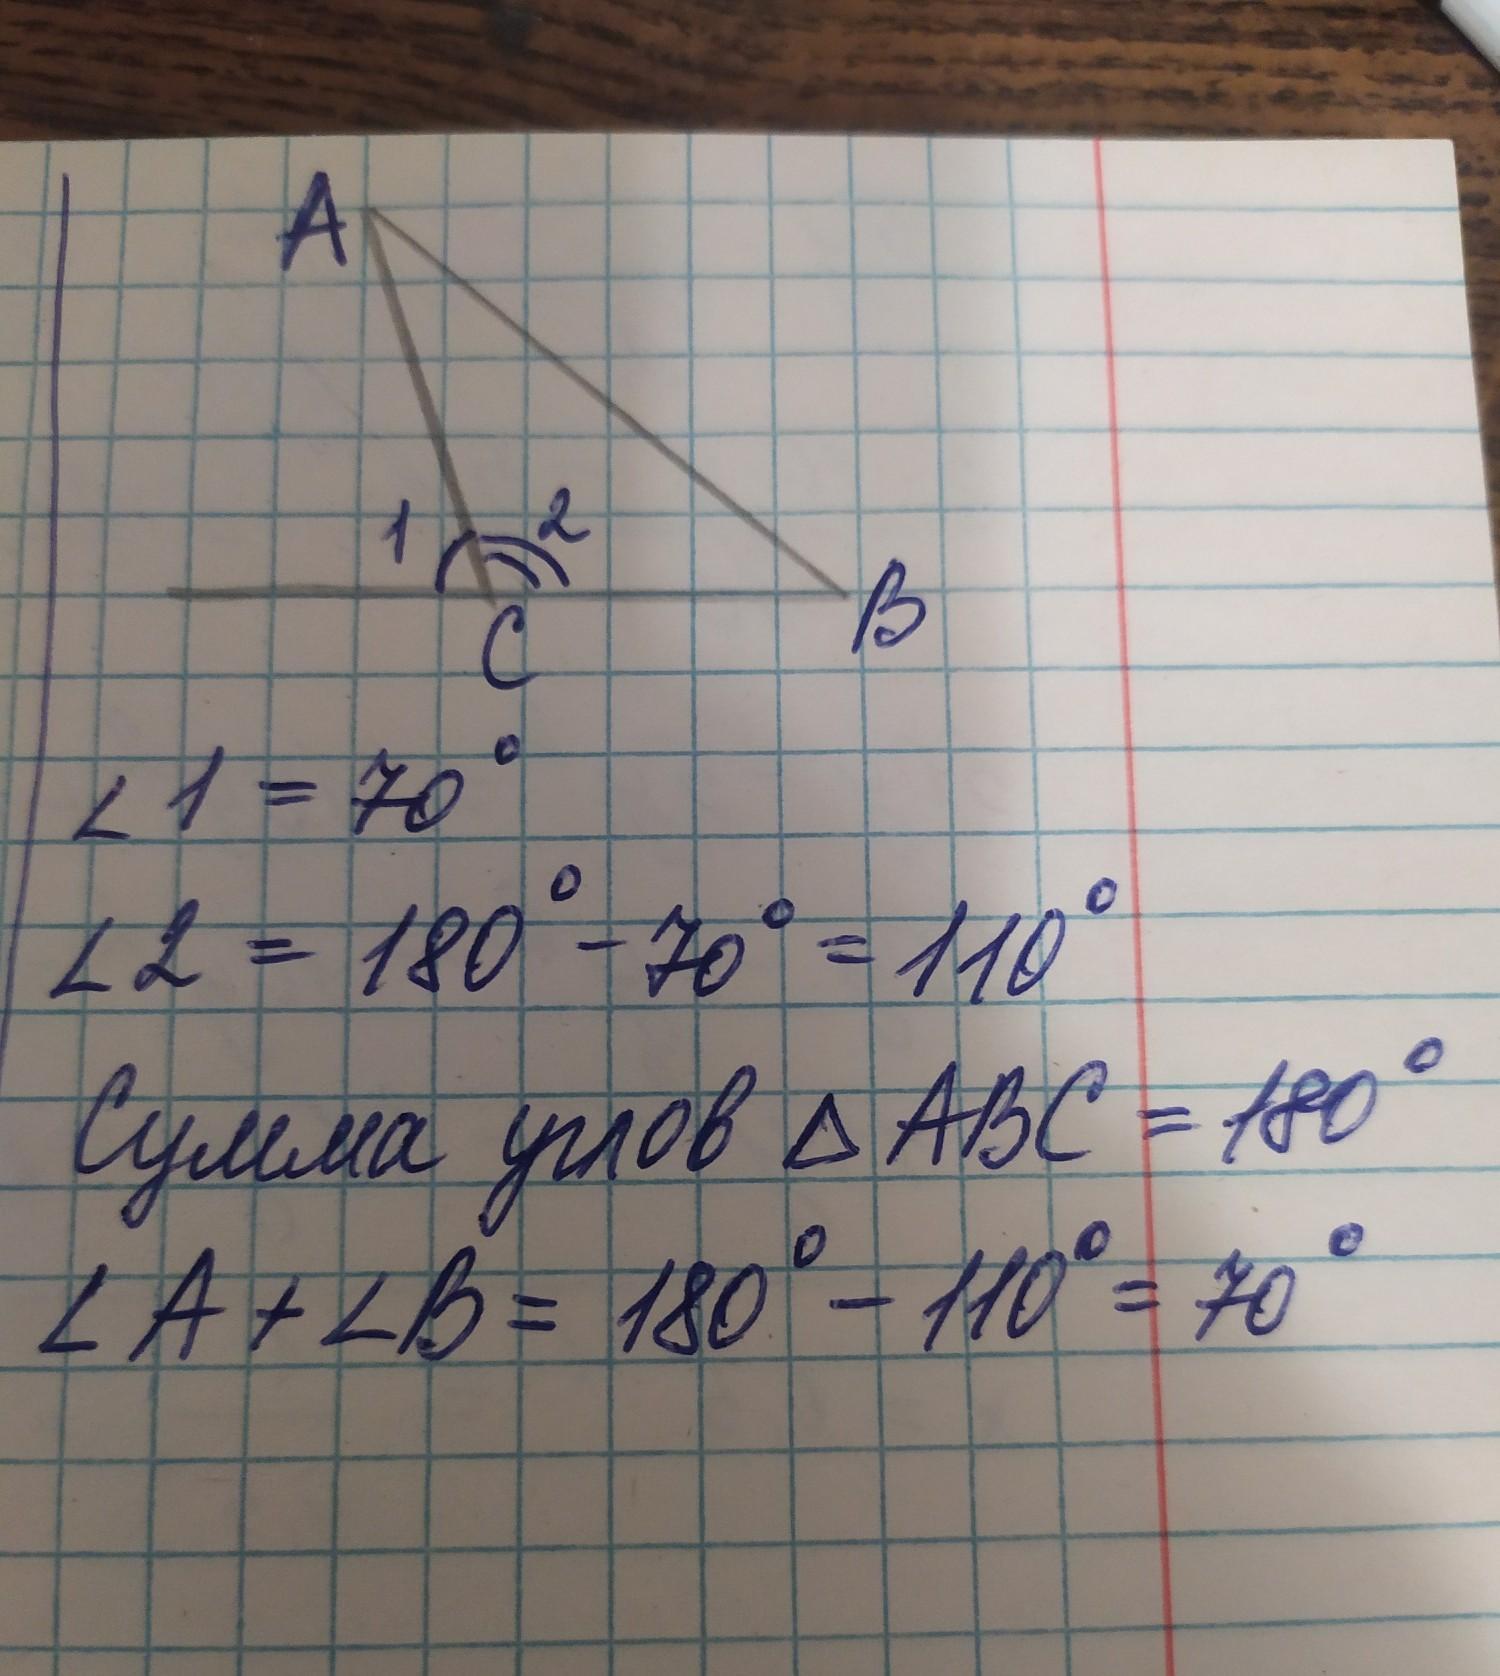 A
1 2
C B
∠1 = 70°
∠2 = 180° - 70° = 110°
Сумма углов △ABC = 180°
∠A + ∠B = 180° - 110° = 70°